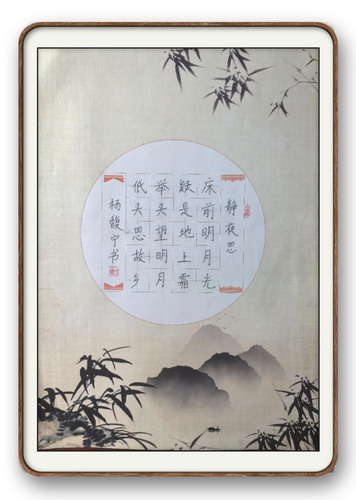 静夜思
床前明月光
疑是地上霜
举头望明月
低头思故乡
杨馥宁书